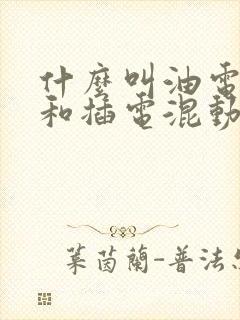 什麼叫油電
和插電混動
葉茵蘭-普法